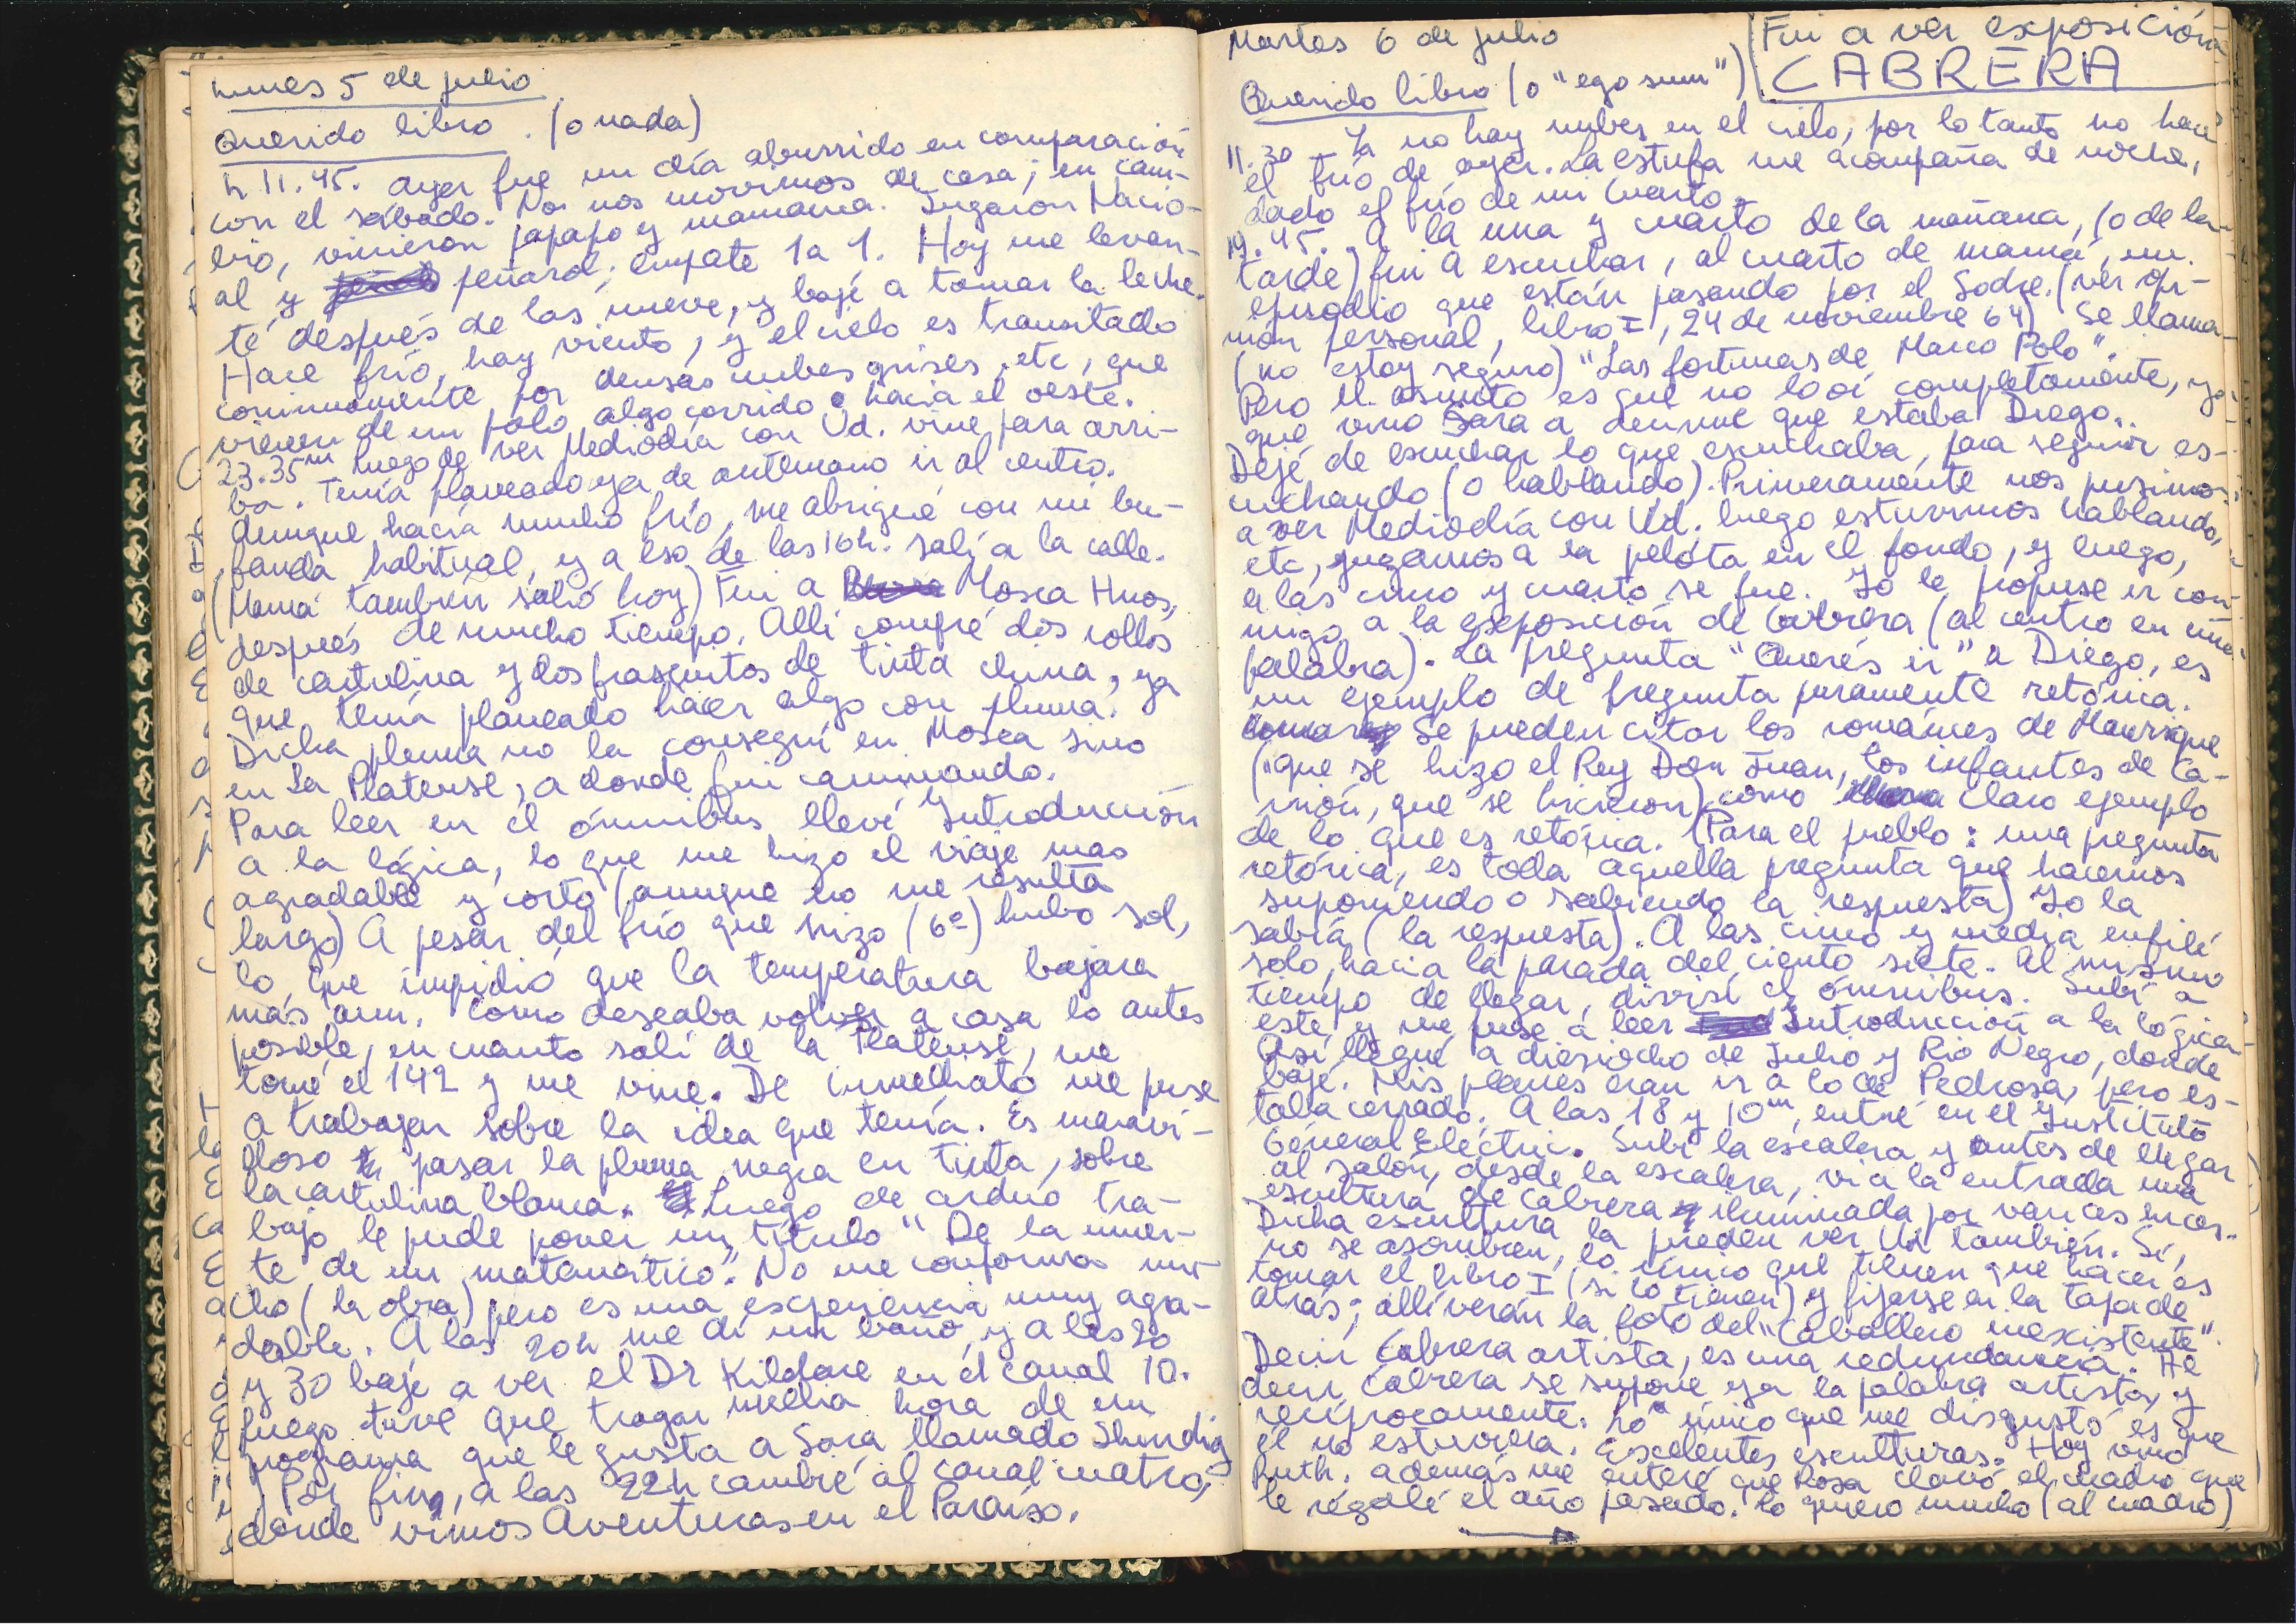 Lunes 5 de julio
Querido libro . (o nada)
h 11.45. ayer fue un día aburrido en comparación
con el sábado. No nos movimos de casa; en cam-
bio, vinieron papapo y mamama. Jugaron Nacio-
al y peñarol; empate 1 a 1. Hoy me levan-
té después de las nueve, y bajé a tomar la leche.
Hace frío, hay viento, y el cielo es transitado
continuamente por densas nubes grises, etc, que
vienen de un polo algo corrido hacia el oeste.
23.35m luego de ver Mediodía con Ud. vine para arri-
ba. Tenía planeado ya de antemano ir al centro.
Aunque hacía mucho frío, me abrigué con mi bu-
fanda habitual, y a eso de las 16h. salí a la calle.
(Mamá también salió hoy) Fui a Mosca Hnos,
después de mucho tiempo. Allí compré dos rollos
de cartulina y dos frasquitos de tinta china, ya
que tenía planeado hacer algo con pluma.
Dicha pluma no la conseguí en Mosca sino
en La Platense, a donde fui caminando.
Para leer en el ómnibus llevé Introducción
a la lógica, lo que me hizo el viaje mas
agradable y corto (aunque no me resulta
largo) A pesar del frío que hizo (6º) hubo sol,
lo que impidió que la temperatura bajara
más aun. Como deseaba volver a casa lo antes
posible, en cuanto salí de la Platense, me
tomé el 142 y me vine. De inmediato me puse
a trabajar sobre la idea que tenía. Es maravi-
lloso pasar la pluma negra en tinta, sobre
la cartulina blanca. Luego de arduo tra-
bajo le pude poner un título "De la muer-
te de un matemático". No me conforma mu-
cho (la obra) pero es una experiencia muy agra-
dable. A las 20h me di un baño, y a las 20
y 30 bajé a ver el Dr Kildare en el canal 10.
Luego tuve que tragar media hora de un
programa que le gusta a Sara llamado Shindig
Por fin, a las 22h cambié al canal cuatro,
donde vimos Aventuras en el Paraíso.
Martes 6 de julio
Fui a ver exposición
CABRERA
Querido libro (o "ego sum")
11.30 Ya no hay nubes en el cielo, por lo tanto no hace
el frío de ayer. La estufa me acompaña de noche,
dado el frío de mi cuarto.
19.45. A la una y cuarto de la mañana, (o de la
tarde) fui a escuchar, al cuarto de mamá, un
episodio que están pasando por el Sodre. (ver opi-
nión personal, libro I, 24 de noviembre 64) Se llama
(no estoy seguro) "Las fortunas de Marco Polo".
Pero el asunto es que no lo oí completamente, ya
que vino Sara a decirme que estaba Diego.
Dejé de escuchar lo que escuchaba, para seguir es-
cuchando (o hablando). Primeramente nos pusimos
a ver Mediodía con Ud. luego estuvimos hablando,
etc, jugamos a la pelota en el fondo, y luego,
a las cinco y cuarto se fue. Yo le propuse ir con-
migo a la exposición de Cabrera (al centro en una
palabra). La pregunta "Querés ir" a Diego, es
un ejemplo de pregunta puramente retórica.
Se pueden citar los romances de Manrique
("que se hizo el Rey Don Juan, los infantes de Ca-
rrión, que se hicieron) como claro ejemplo
de lo que es retórica. (Para el pueblo: una pregunta
retórica, es toda aquella pregunta que hacemos
suponiendo o sabiendo la respuesta) Yo la
sabía (la respuesta). A las cinco y media enfilé
solo, hacia la parada del ciento siete. Al mismo
tiempo de llegar, divisé el ómnibus. Subí a
este y me puse a leer Introducción a la lógica.
Así llegué a dieciocho de Julio y Rio Negro, donde
bajé. Mis planes eran ir a lo de Pedrosa, pero es-
taba cerrado. A las 18 y 10m, entré en el Instituto
General Electric. Subí la escalera y antes de llegar
al salón, desde la escalera, vi a la entrada una
escultura de Cabrera iluminada por varios
Dicha escultura la pueden ver Ud también. Sí,
no se asombren, lo único que tienen que hacer es
tomar el libro I (si lo tienen) y fijarse en la tapa de
atrás; allí verán la foto del "Caballero inexistente".
Decir Cabrera artista, es una redundancia. Al
decir Cabrera se supone ya la palabra artista, y
recíprocamente. Lo único que me disgustó es que
él no estuviera. Excelentes esculturas. Hoy vino
Ruth. además me enteré que Rosa clavó el cuadro que
le regalé el año pasado. Lo quiero mucho (al cuadro)